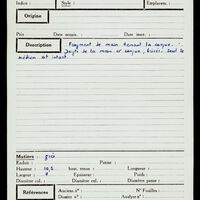 Indice : Style : Emplacem. :
Origine
Prix Date acquis. : Date inscr. :
Description Fragment de main tenant la conque.
Doigts de la main et conque, brisés. Seul le
médium est intact.
Matière :
Enduit : Patine :
Hauteur : 10,2 haut. tenon : Longueur :
Largeur : Epaisseur : Poids :
Diamètre col. : Diamètre panse :
Références Anciens n° : N° Fouilles :
Dossier n° : Analyse n° :